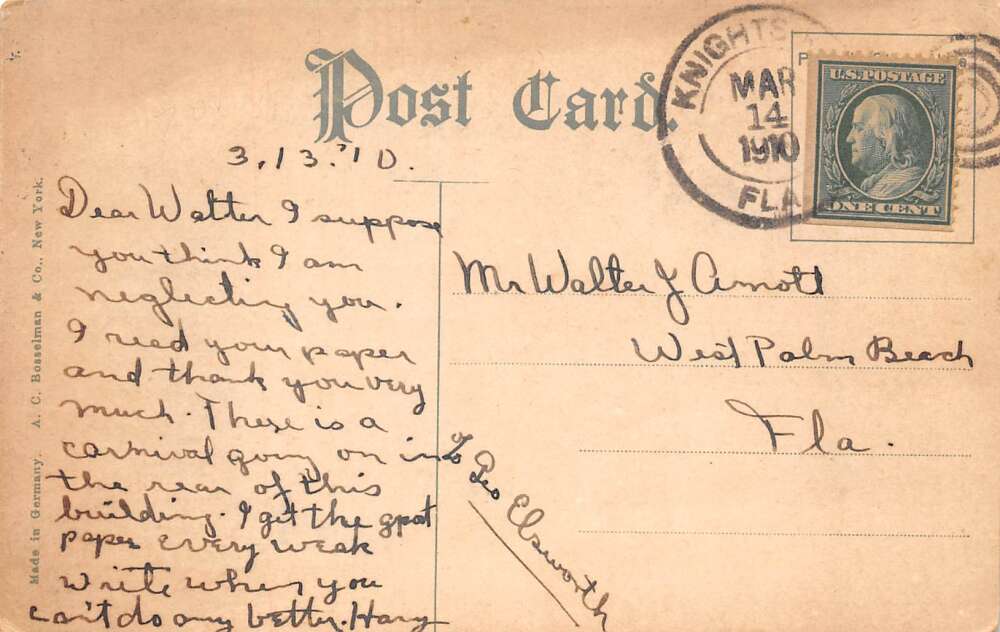 Post Card.
3.13.'10.
Dear Walter I suppose
you think I am
neglecting you.
I read your paper
and thank you very
much. There is a
carnival going on in
the rear of this
building. I get the
paper every weak
write when you
can't do any better. Harry
KNIGHTS
MAR
14
1910
FLA
U.S. POSTAGE
ONE CENT
Mr Walter J Arnott
West Palm Beach
Fla.
c/o Geo Elsworth
Made in Germany. A. C. Bosselman & Co., New York.